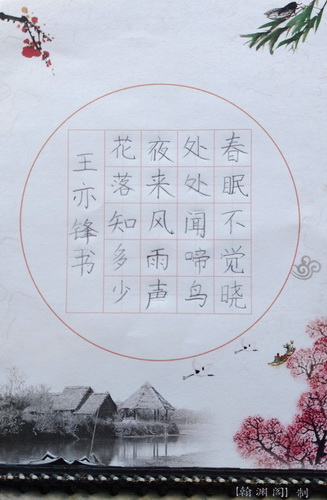 春眠不觉晓
处处闻啼鸟
夜来风雨声
花落知多少
王亦锋书
【翰渊阁】制